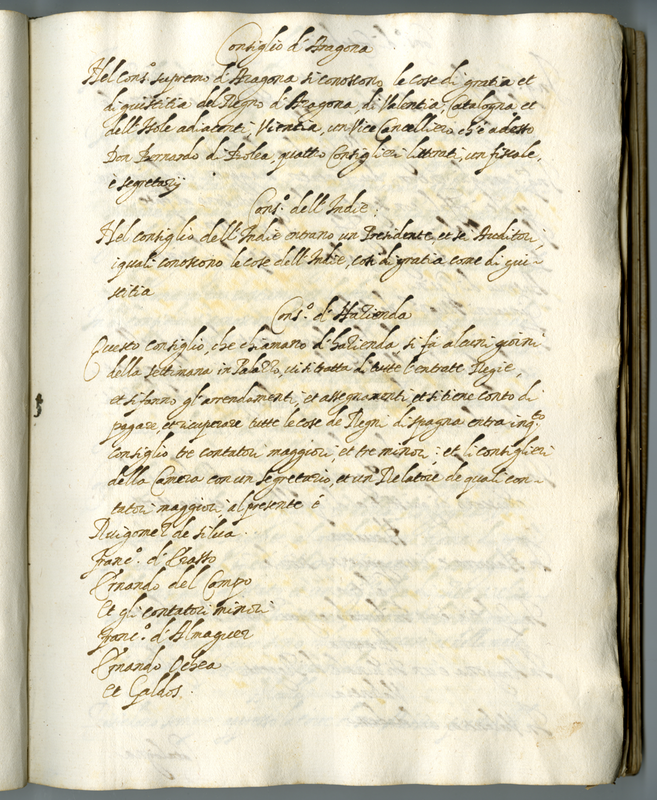 Consiglio d'Aragona
Nel cons.o supremo d'Aragona si conoscono le cose di gratia et
di giustitia del Regno d'Aragona, di Valentia, Catalogna et
dell'Isole adiacenti, un Vice Cancelliero, ch'è adesso
Don Bernardo di Bolea, quattro Consiglieri littrati, un fiscale,
e segretarij
Cons.o dell'Indie.
Nel consiglio dell'Indie entrano un Presidente, et sei Auditori,
i quali conoscono le cose dell'Indie, così di gratia come di giu-
stitia
Cons.o d'Hazienda
Questo consiglio, che chiamano d'hazienda si fà alcuni giorni
della settimana in Palazzo, vi si tratta di tutte l'entrate Regie,
et si fanno gl'arrendamenti, et assegnamenti, et si tiene conto di
pagare, et ricuperare tutte le cose de Regni di spagna entra in q.to
consiglio tre contatori maggiori, et tre minori: et li consiglieri
della Camera con un segretario, et un Relatore de quali con-
tatori maggiori, al presente è
Ruigomez de silva.
Franc.o d'Erasso
Ernando del Campo
Et gli contatori minori
Franc.o d'Almaguer
Ernando Ochea
et Galdos.